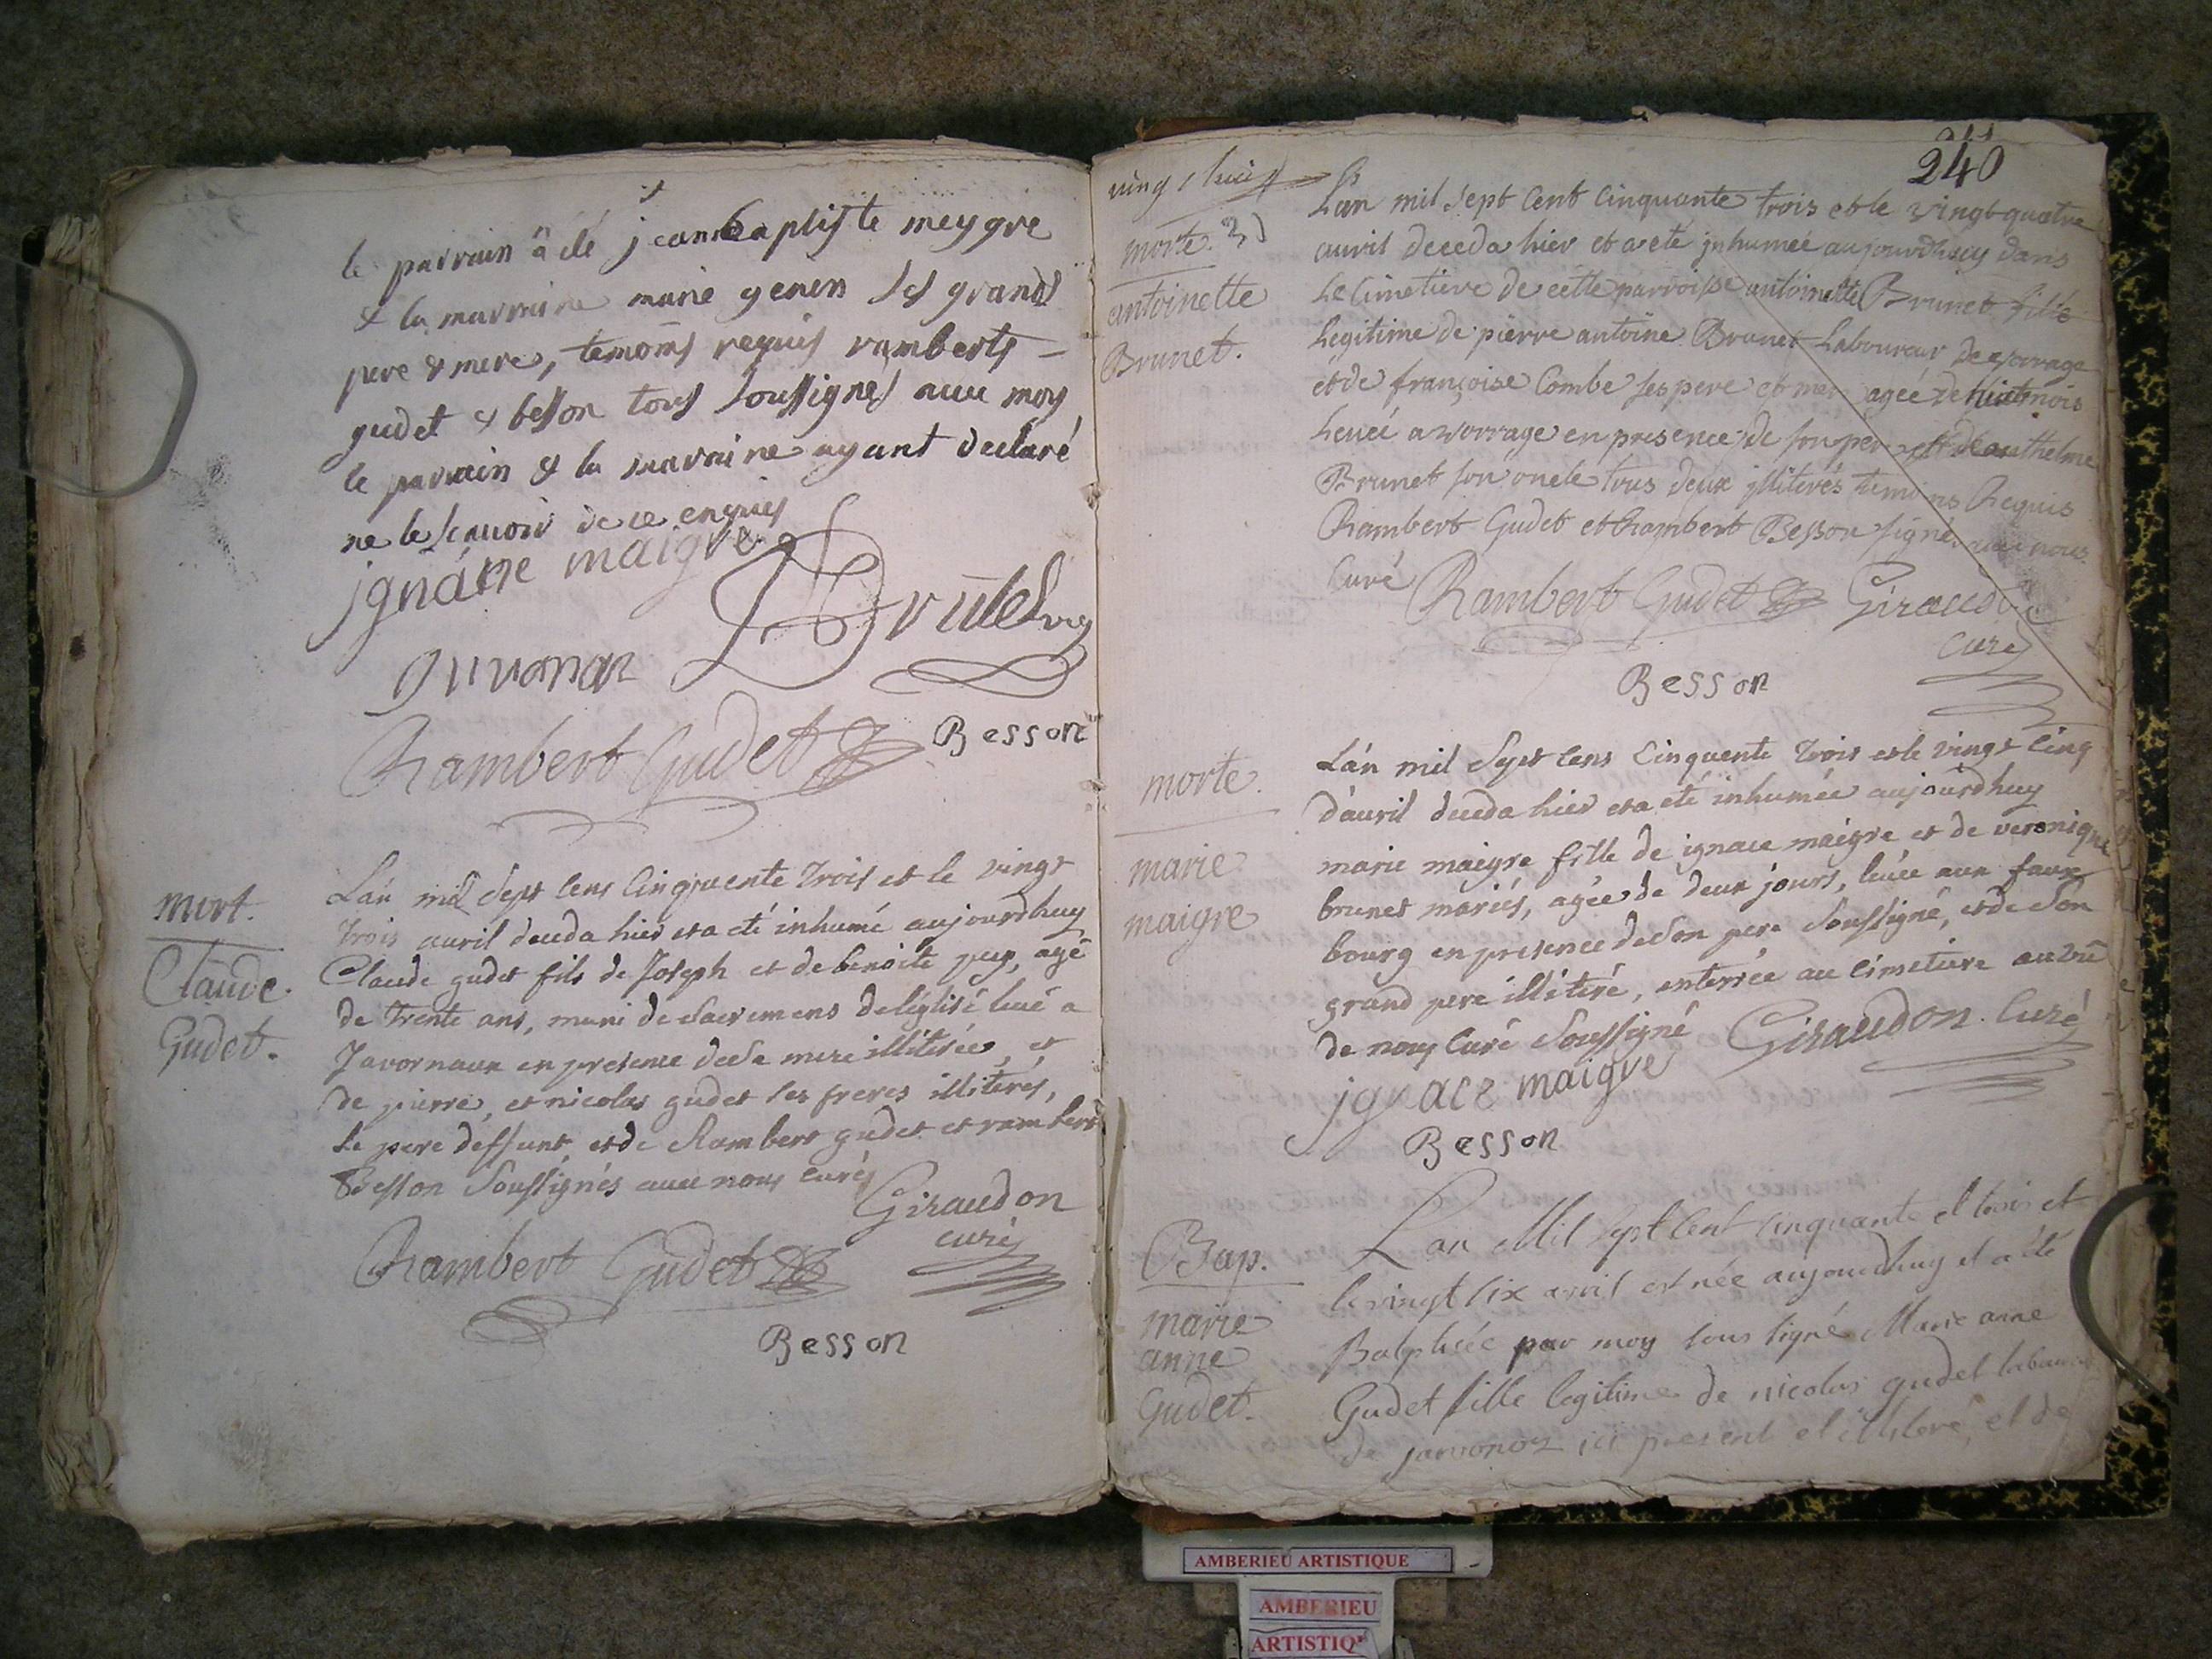 le parrain a été jean baptiste meygre
& la marraine marie genen ses grands
pere & mere, temoins requis ramberts
gudet & besson tous soussignes avec moy
le parrain & la marraine ayant declaré
ne le scavoir de ce enquis
jgnace maigre
Rambert Gudet
Besson
mort.
Claude.
Gudet.
L'an mil sept cens cinquente trois et le vingt
trois avril deceda hier et a eté inhumé aujourdhuy
Claude gudet fils de Joseph et de benoite puy, agé
de trente ans, muni de sacremens de l'église levé a
Javornaux en presence de sa mere illitirée, et
de pierre, et nicolas gudet ses freres illiterés,
le pere deffunt, et de Rambert gudet et rambert
Besson soussignés avec nous curé
Giraudon
curé
Rambert Gudet
Besson
240
morte.
antoinette
Brunet.
Lan mil sept cent cinquante trois et le vingt quatre
avril deceda hier et a eté jnhumeé aujourdhuy dans
le cimetiere de cette parroisse antoinette Brunet fille
legitime de pierre antoine Brunet laboureur de vorrage
et de françoise Combe ses pere et mer agée de huit mois
levée a vorrage en presence de son per et de anthelme
Brunet son oncle tous deux jlliterés temoins Requis
Rambert Gudet et Rambert Besson signes avec nous
curé
Rambert Gudet
Giraudon
curé
Besson
morte.
marie
maigre
L'an mil sept cens cinquente trois et le vingt cinq
d'avril deceda hier et a eté inhumée aujourdhuy
marie maigre fille de ignace maigre et de veronique
brunet mariés, agée de deux jours, levée aux faux
bourg en presence de son pere soussigné, et de son
grand pere illitiré, enterrée au cimetiere
de nous curé soussigné
Giraudon. Curé
jgnace maigre
Besson
Bap.
marie
anne
Gudet.
Lan Mil sept cent cinquante et trois et
le vingt six avril est née aujourdhuy et a été
Baptisée par moy sous signé Marie anne
Gudet fille legitime de nicolas gudet laboureur
de javornoz ici present et illiteré, et de
AMBERIEU ARTISTIQUE
AMBERIEU
ARTISTIQ